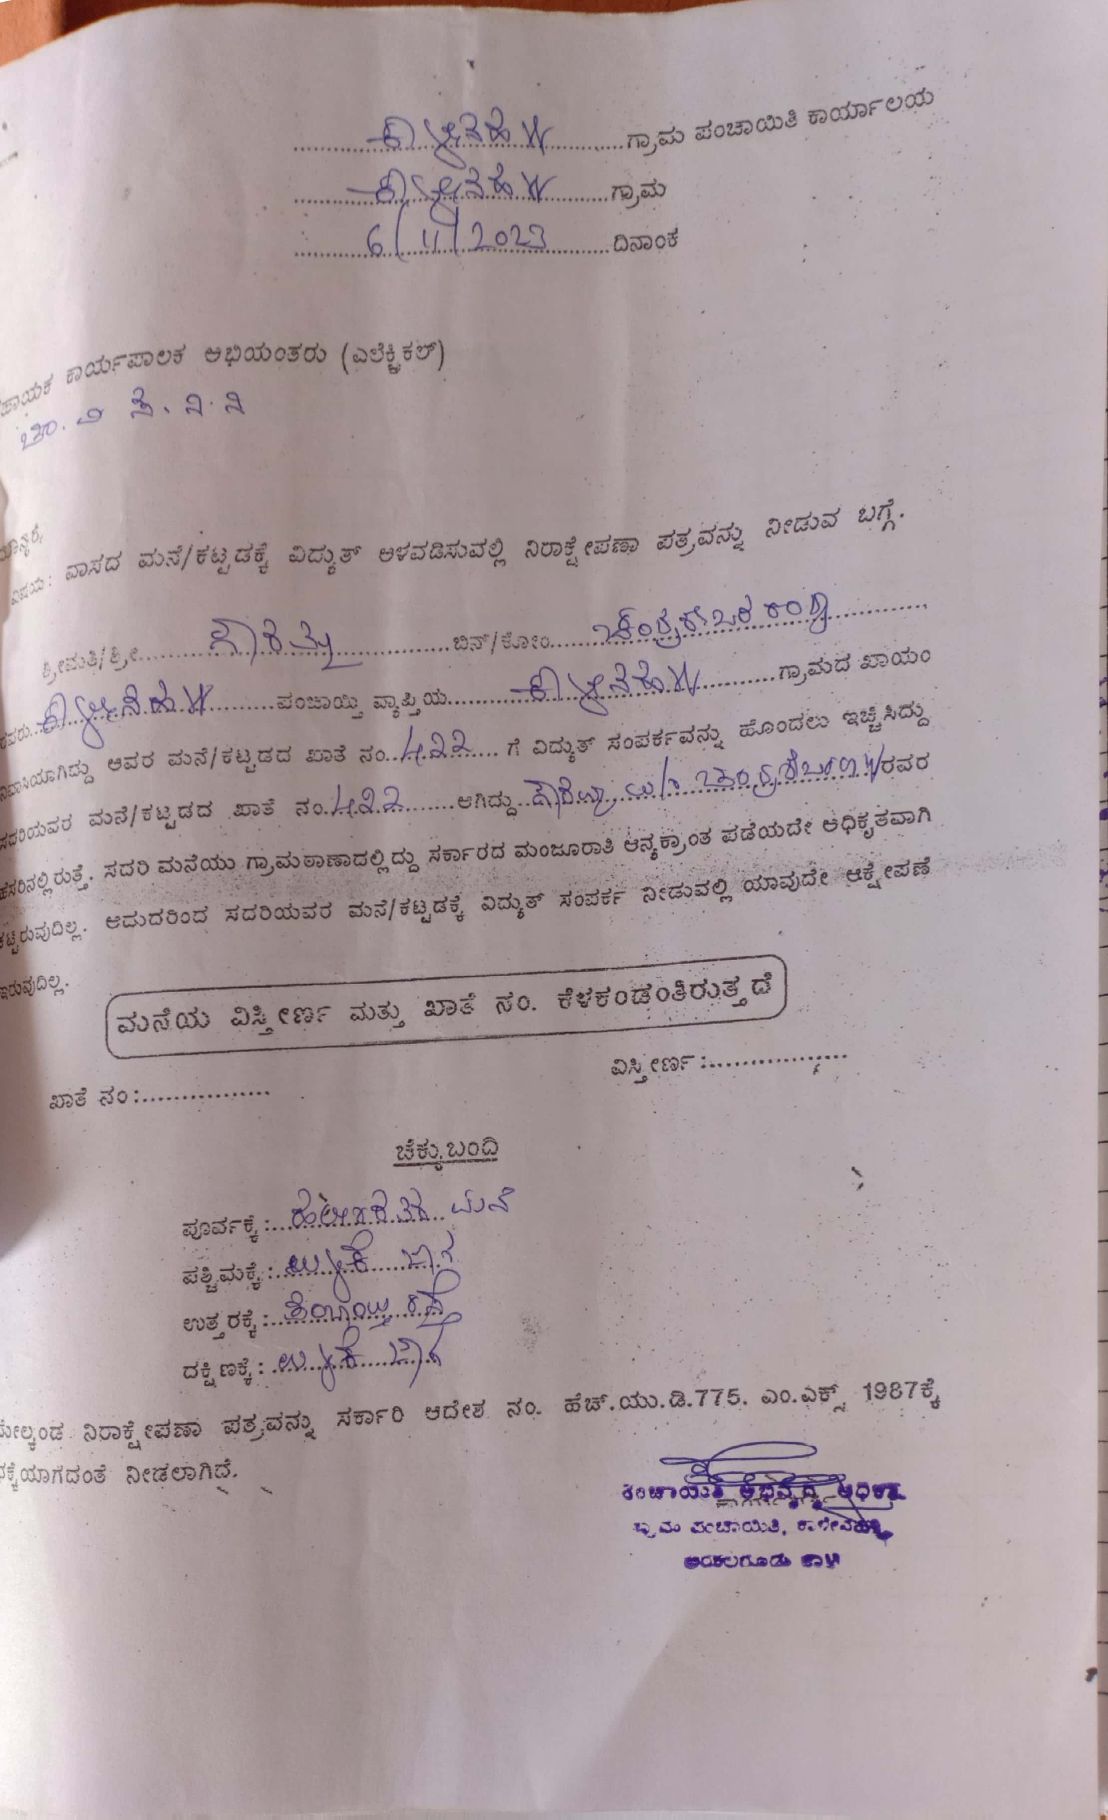 ಕಾಳೇನಹಳ್ಳಿ ಗ್ರಾಮ ಪಂಚಾಯಿತಿ ಕಾರ್ಯಾಲಯ
ಕಾಳೇನಹಳ್ಳಿ ಗ್ರಾಮ
6/11/2023 ದಿನಾಂಕ
ಹಾಯಕ ಕಾರ್ಯಪಾಲಕ ಅಭಿಯಂತರು (ಎಲೆಕ್ಟ್ರಿಕಲ್)
ಚಾ. ವಿ
ಮಾನ್ಯರೆ,
ವಿಷಯ: ವಾಸದ ಮನೆ/ಕಟ್ಟಡಕ್ಕೆ ವಿದ್ಯುತ್ ಅಳವಡಿಸುವಲ್ಲಿ ನಿರಾಕ್ಷೇಪಣಾ ಪತ್ರವನ್ನು ನೀಡುವ ಬಗ್ಗೆ.
ಶ್ರೀಮತಿ/ಶ್ರೀ ಬಿನ್/ಕೋಂ
ರವರು ಕಾಳೇನಹಳ್ಳಿ ಪಂಚಾಯ್ತಿ ವ್ಯಾಪ್ತಿಯ ಕಾಳೇನಹಳ್ಳಿ ಗ್ರಾಮದ ಖಾಯಂ
ನಿವಾಸಿಯಾಗಿದ್ದು ಅವರ ಮನೆ/ಕಟ್ಟಡದ ಖಾತೆ ನಂ. 422 ಗೆ ವಿದ್ಯುತ್ ಸಂಪರ್ಕವನ್ನು ಹೊಂದಲು ಇಚ್ಛಿಸಿದ್ದು
ಸದರಿಯವರ ಮನೆ/ಕಟ್ಟಡದ ಖಾತೆ ನಂ. 422 ಆಗಿದ್ದು ರವರ
ಹೆಸರಿನಲ್ಲಿರುತ್ತೆ. ಸದರಿ ಮನೆಯು ಗ್ರಾಮಠಾಣಾದಲ್ಲಿದ್ದು ಸರ್ಕಾರದ ಮಂಜೂರಾತಿ ಆನ್ಯಕ್ರಾಂತ ಪಡೆಯದೇ ಅಧಿಕೃತವಾಗಿ
ಕಟ್ಟಿರುವುದಿಲ್ಲ. ಆದುದರಿಂದ ಸದರಿಯವರ ಮನೆ/ಕಟ್ಟಡಕ್ಕೆ ವಿದ್ಯುತ್ ಸಂಪರ್ಕ ನೀಡುವಲ್ಲಿ ಯಾವುದೇ ಆಕ್ಷೇಪಣೆ
ಇರುವುದಿಲ್ಲ.
ಮನೆಯ ವಿಸ್ತೀರ್ಣ ಮತ್ತು ಖಾತೆ ನಂ. ಕೆಳಕಂಡಂತಿರುತ್ತದೆ
ಖಾತೆ ನಂ: ವಿಸ್ತೀರ್ಣ:
ಚೆಕ್ಕುಬಂದಿ
ಪೂರ್ವಕ್ಕೆ: ಮನೆ
ಪಶ್ಚಿಮಕ್ಕೆ: ಉಳಿಕೆ ಜಾಗ
ಉತ್ತರಕ್ಕೆ: ರಸ್ತೆ
ದಕ್ಷಿಣಕ್ಕೆ: ಉಳಿಕೆ ಜಾಗ
ಮೇಲ್ಕಂಡ ನಿರಾಕ್ಷೇಪಣಾ ಪತ್ರವನ್ನು ಸರ್ಕಾರಿ ಆದೇಶ ನಂ. ಹೆಚ್.ಯು.ಡಿ.775. ಎಂ.ಎಕ್ಸ್ 1987ಕ್ಕೆ
ಧಕ್ಕೆಯಾಗದಂತೆ ನೀಡಲಾಗಿದೆ.
ಪಂಚಾಯಿತಿ ಅಭಿವೃದ್ಧಿ ಅಧಿಕಾರಿ
ಗ್ರಾಮ ಪಂಚಾಯಿತಿ, ಕಾಳೇನಹಳ್ಳಿ
ಅರಕಲಗೂಡು ತಾ||